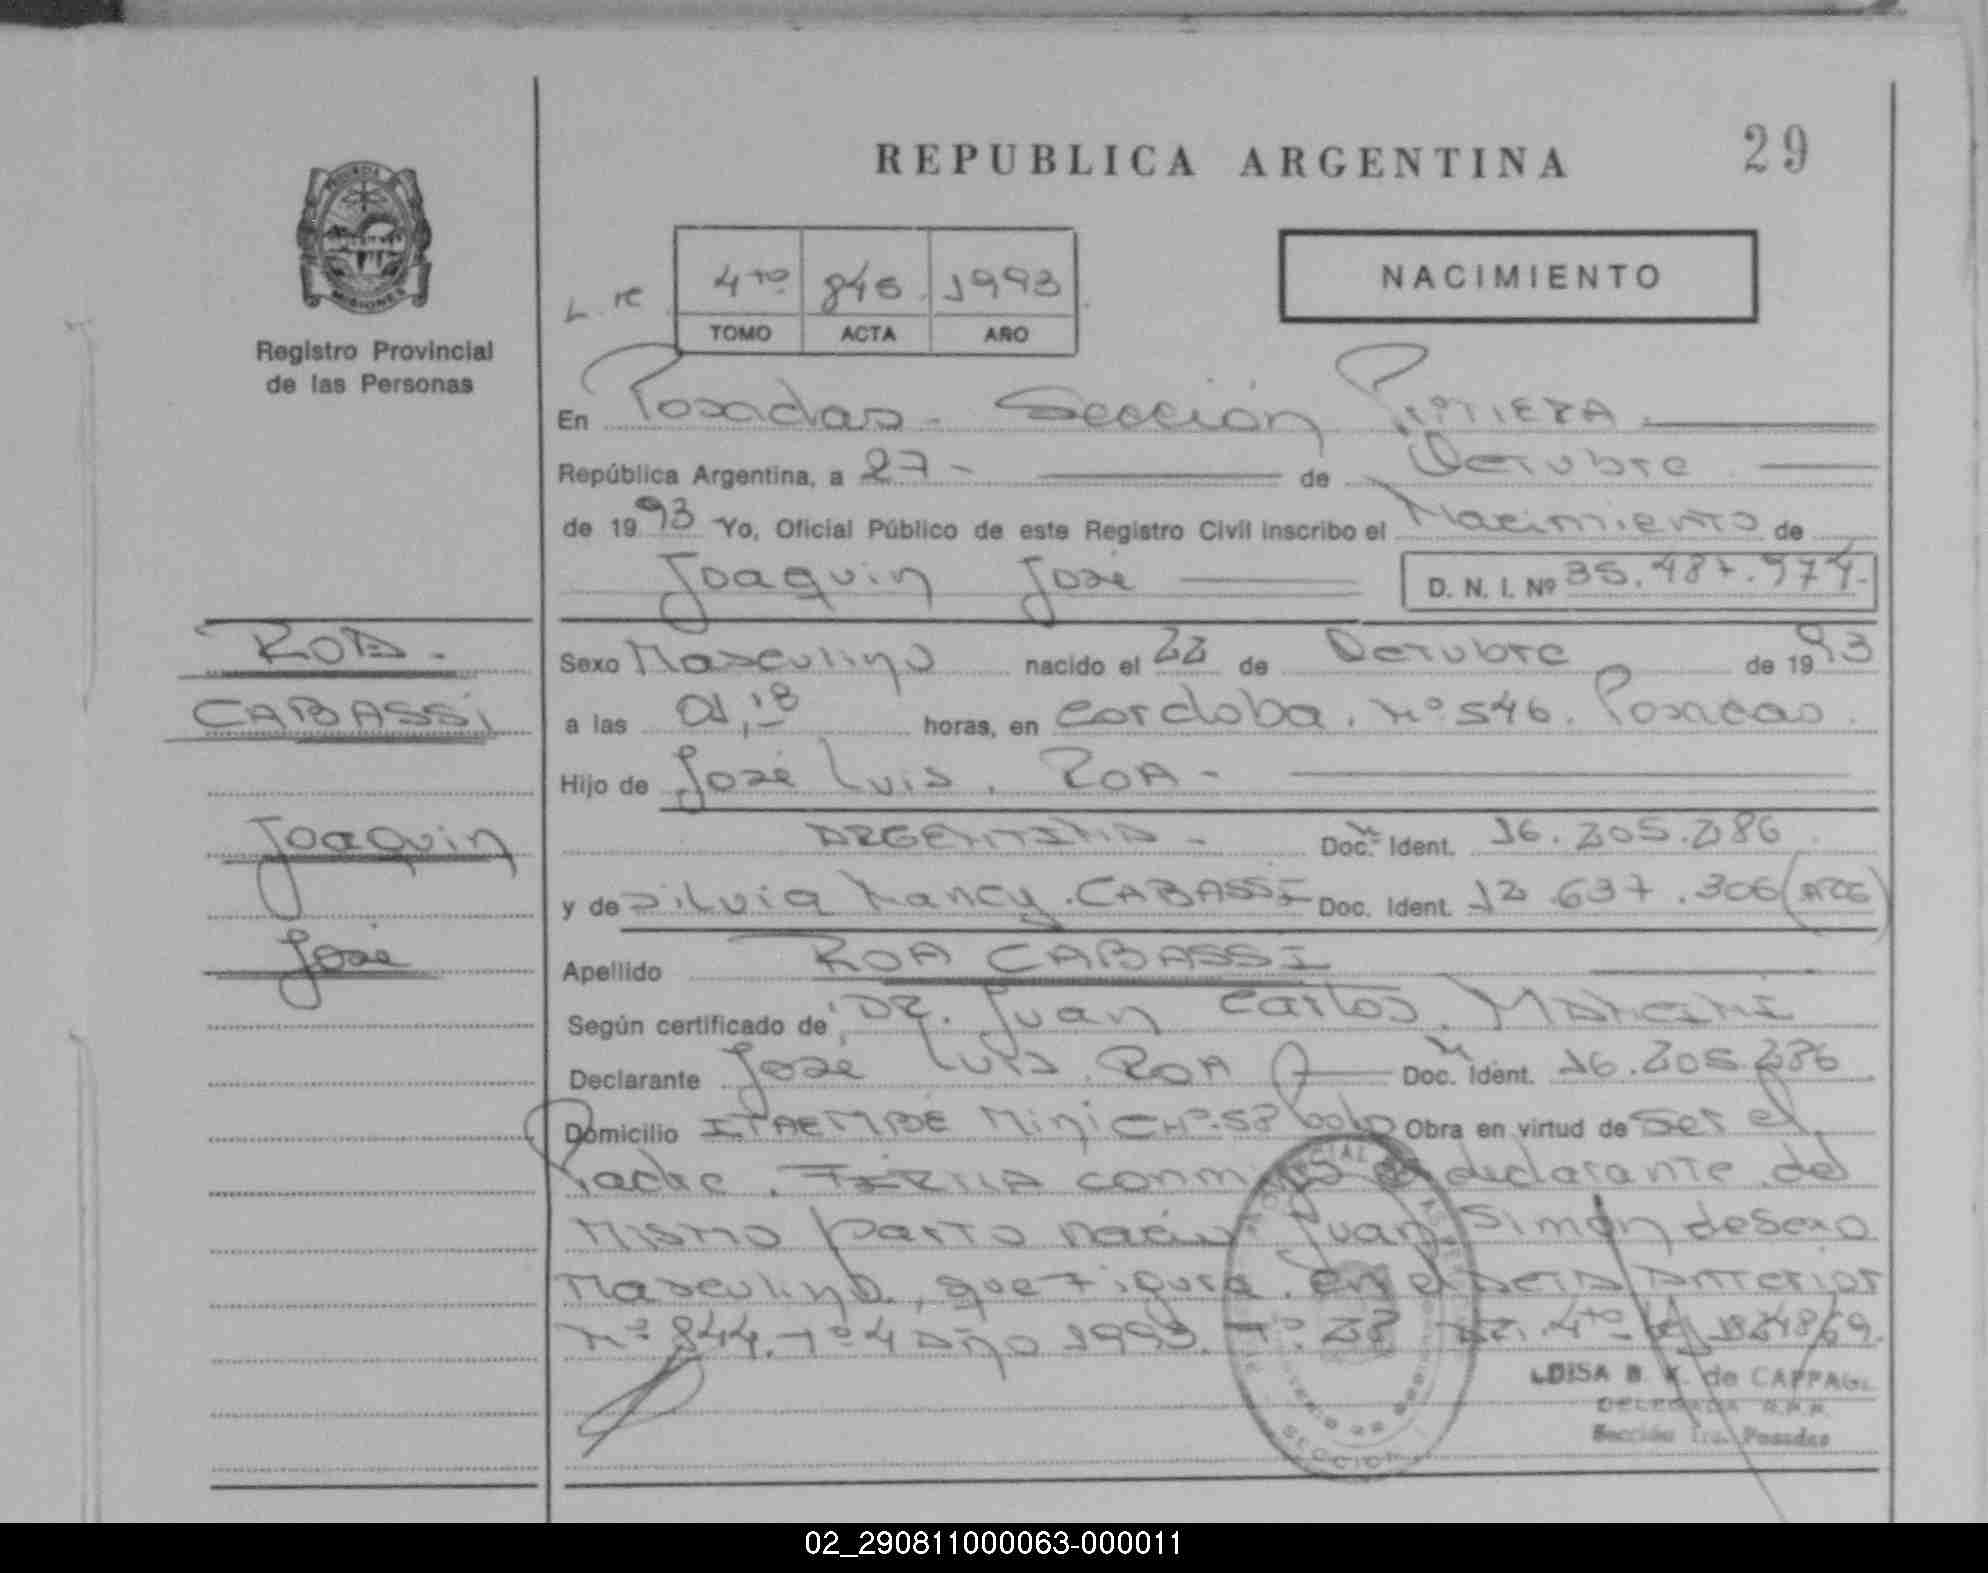 REPUBLICA ARGENTINA
29
NACIMIENTO
4to 845 1993
TOMO ACTA AÑO
MISIONES
Registro Provincial
de las Personas
En Posadas - Sección Primera
República Argentina, a 27 - de Octubre
de 1993 Yo, Oficial Público de este Registro Civil inscribo el Nacimiento de
Joaquin José D. N. I. Nº
ROA -
CABASSI
Joaquin
José
Sexo Masculino nacido el 22 de Octubre de 1993
a las 01,18 horas, en Cordoba. Nº 546. Posadas.
Hijo de José Luis. ROA -
ARGENTINA - Doc. Ident. 16.205.286
y de Silvia Nancy. CABASSI Doc. Ident. 12.637.306 (ARG)
Apellido ROA CABASSI
Según certificado de DR. Juan Carlos. MANCINI
Declarante José Luis. ROA Doc. Ident. 16.205.286
Domicilio ITAEMBÉ Mini Obra en virtud de Ser el
Padre. FIRMA conmigo el declarante. del
Mismo parto nació Juan Simón de sexo
Masculino, que figura en el acta anterior
Nº 844. Tº 4 Año 1993.
LUISA B. K. de CAPPAGLI
DELEGADA R.P.P.
Sección 1ra. Posadas
SECCION
02_290811000063-000011